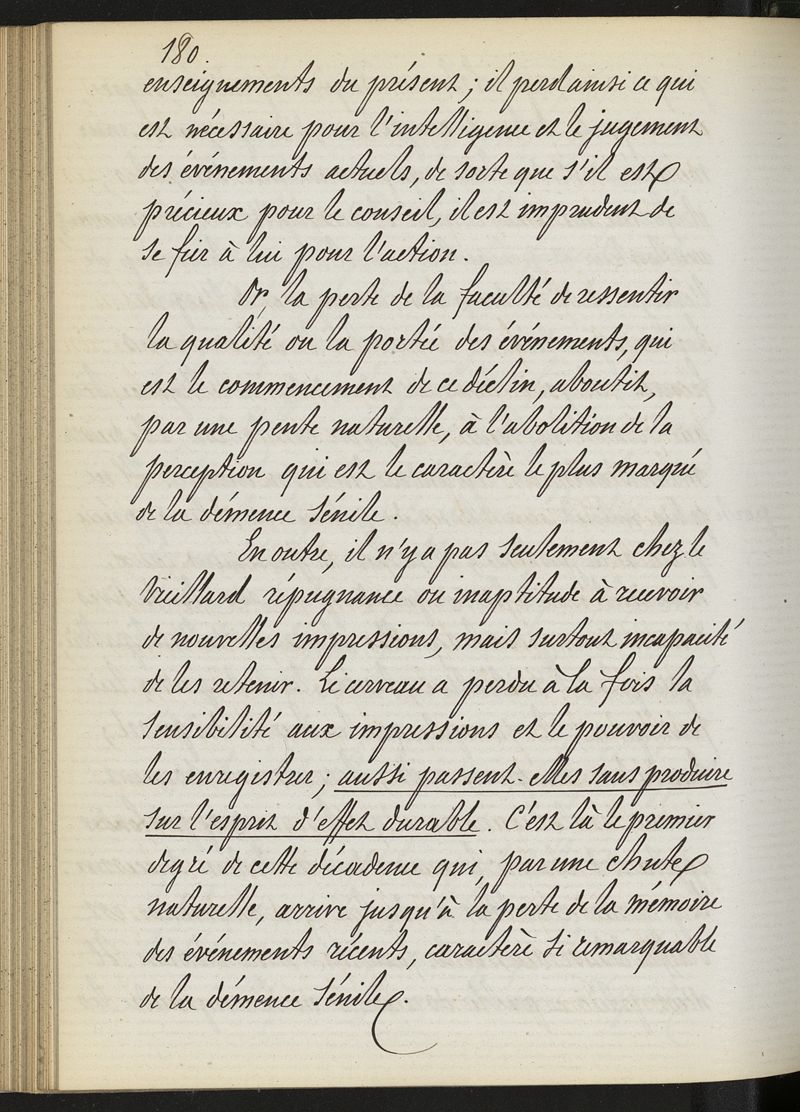 180.
enseignements du présent ; il perd ainsi ce qui
est nécessaire pour l'intelligence et le jugement
des événements actuels, de sorte que s'il est
précieux pour le conseil, il est imprudent de
se fier à lui pour l'action.
Or, la perte de la faculté de ressentir
la qualité ou la portée des événements, qui
est le commencement de ce déclin, aboutit,
par une pente naturelle, à l'abolition de la
perception qui est le caractère le plus marqué
de la démence sénile.
En outre, il n'y a pas seulement chez le
vieillard répugnance ou inaptitude à recevoir
de nouvelles impressions, mais surtout incapacité
de les retenir. Le cerveau a perdu à la fois la
sensibilité aux impressions et le pouvoir de
les enregistrer ; aussi passent-elles sans produire
sur l'esprit d'effet durable. C'est là le premier
degré de cette décadence qui, par une chute
naturelle, arrive jusqu'à la perte de la mémoire
des événements récents, caractère si remarquable
de la démence sénile.